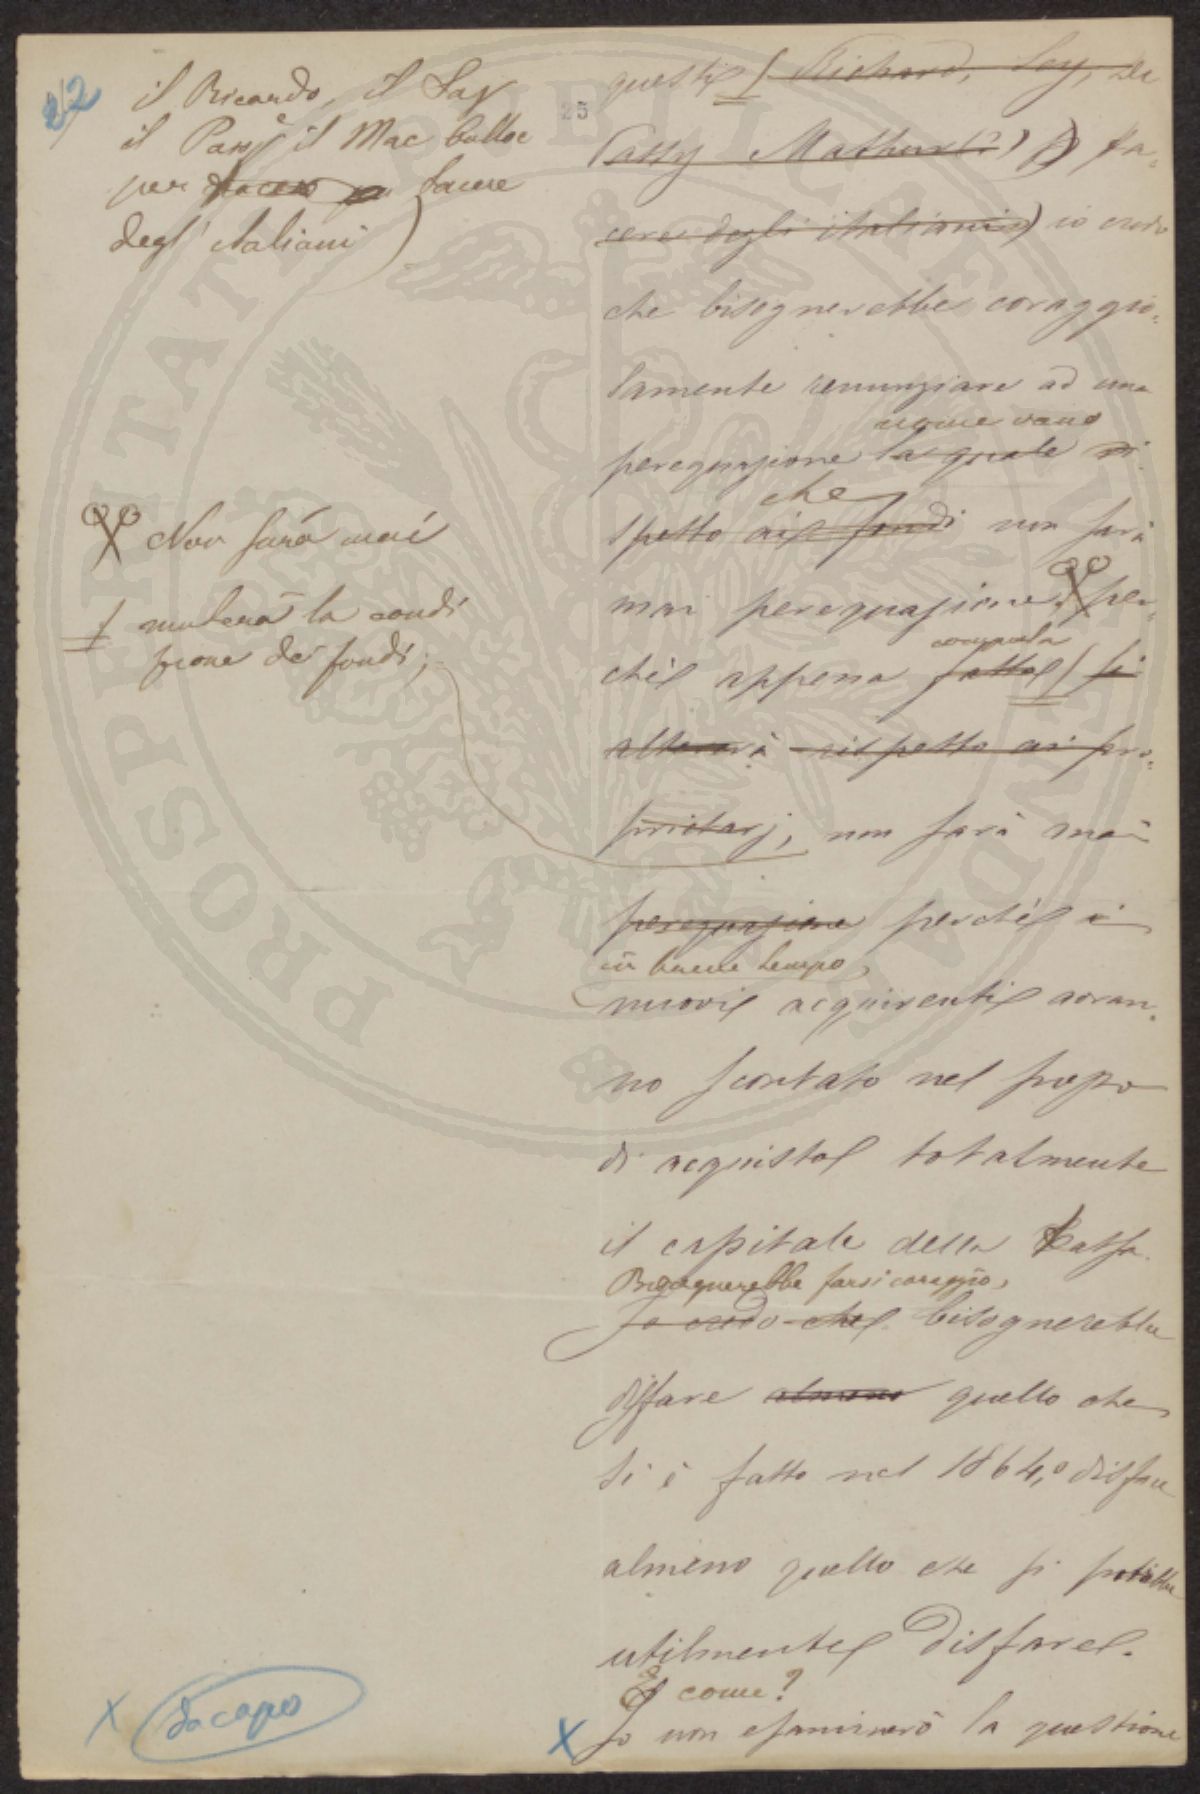 22
il Ricardo, il Say
il Passy il Mac Culloc
per tacere
degl'italiani)
Non sarà mai
muterà la condi
zione dei fondi;
da capo
25
questi (Richard, Say, De
Passy Mathus) ta=
cere degli italiani) io credo
che bisognerebbe coraggio=
samente renunziare ad una
nome vano
perequazione la quale ri
che
spetto ai fondi non sarà
mai perequazione, per=
compiuta
chè appena fatta si
altererà rispetto ai pro=
prietarj, non sarà mai
perequazione perchè i
in breve tempo,
nuovi acquirenti avran=
no scontato nel prezzo
di acquisto totalmente
il capitale della tassa.
Bisognerebbe farsi coraggio,
Io credo che bisognerebbe
disfare almeno quello che
si è fatto nel 1864, o disfare
almeno quello che si potrebbe
utilmente disfare.
E come?
Io non esaminerò la questione
PROSPERITATI PUBLICAE AUGENDAE